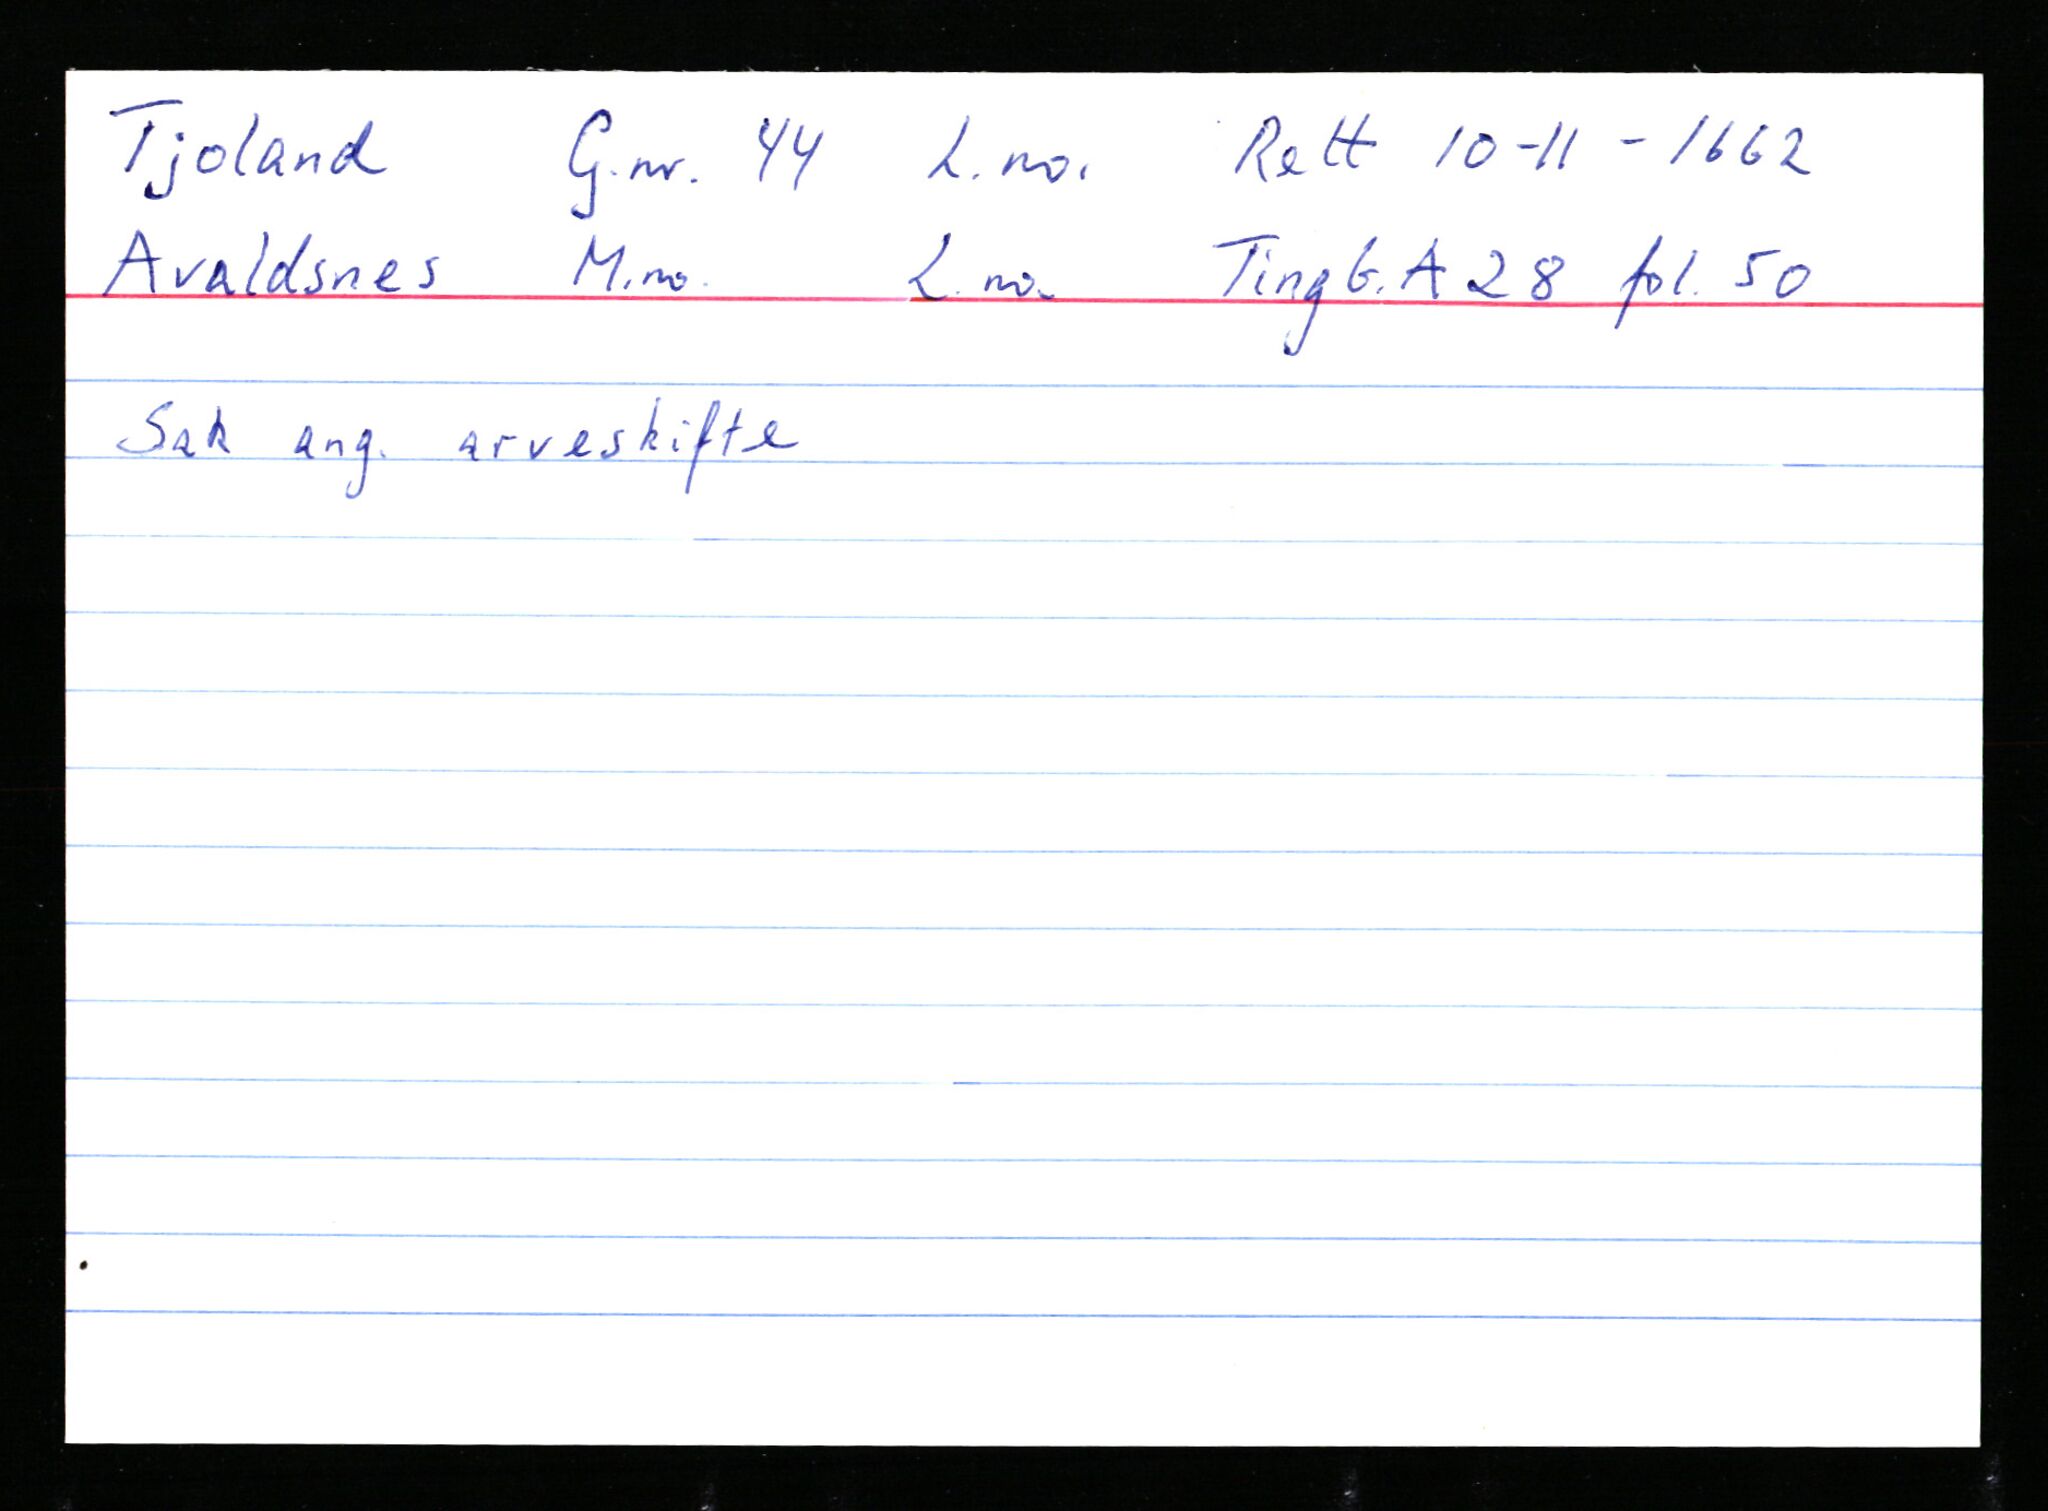 Tjoland G.nr. 44 L.no. Rett 10-11-1662
Avaldsnes M.no. L.no. Tingb. A 28 fol. 50
Sak ang. arveskifte